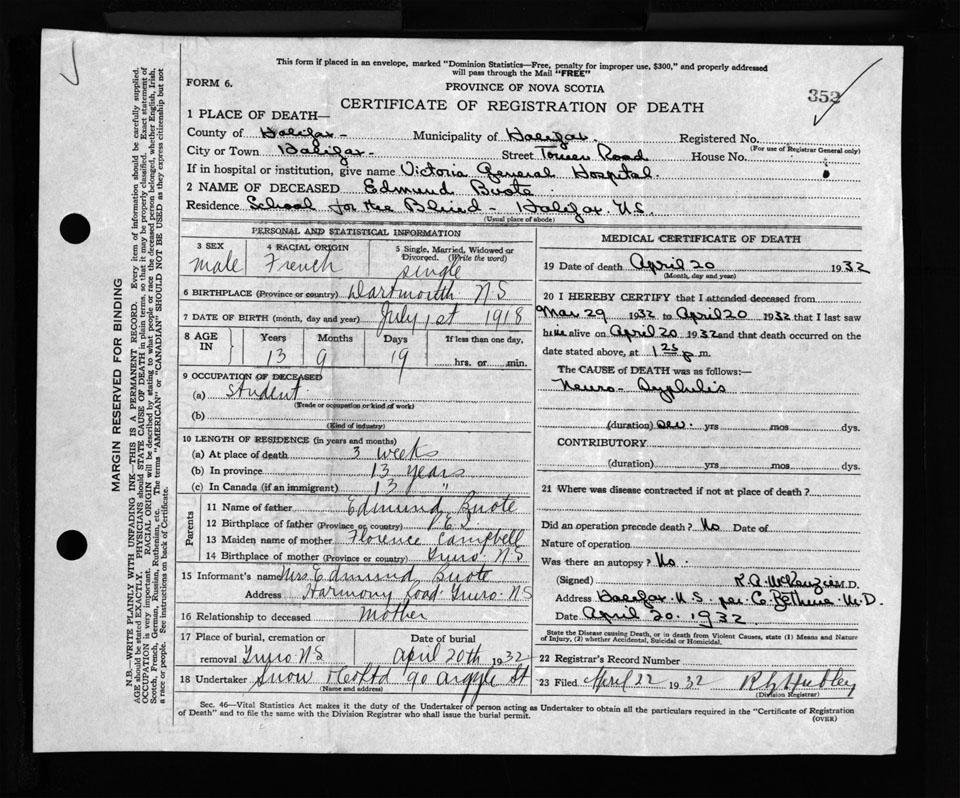 This form if placed in an envelope, marked "Dominion Statistics—Free, penalty for improper use, $300," and properly addressed
will pass through the Mail "FREE"
FORM 6.
PROVINCE OF NOVA SCOTIA
352
CERTIFICATE OF REGISTRATION OF DEATH
1 PLACE OF DEATH—
County of Halifax - Municipality of Halifax. Registered No.
(For use of Registrar General only)
City or Town Halifax - Street Tower Road House No.
If in hospital or institution, give name Victoria General Hospital.
2 NAME OF DECEASED Edmund Buote
Residence School for the Blind - Halifax. N.S.
(Usual place of abode)
PERSONAL AND STATISTICAL INFORMATION
3 SEX 4 RACIAL ORIGIN 5 Single, Married, Widowed or Divorced. (Write the word)
Male French Single
6 BIRTHPLACE (Province or country) Dartmouth N S
7 DATE OF BIRTH (month, day and year) July 1st 1918
8 AGE IN Years Months Days If less than one day,
13 9 19 hrs. or min.
9 OCCUPATION OF DECEASED
(a) Student
(Trade or occupation or kind of work)
(b)
(Kind of industry)
10 LENGTH OF RESIDENCE (in years and months)
(a) At place of death 3 weeks
(b) In province 13 years
(c) In Canada (if an immigrant) 13 "
Parents
11 Name of father Edmund Buote
12 Birthplace of father (Province or country) P.E.I.
13 Maiden name of mother Florence Campbell
14 Birthplace of mother (Province or country) Truro. N.S
15 Informant's name Mrs Edmund Buote
Address Harmony Road. Truro. N S
16 Relationship to deceased Mother
17 Place of burial, cremation or Date of burial
removal Truro. N S April 20th 1932
18 Undertaker Snow & Co Ltd 90 Argyle St
(Name and address)
MEDICAL CERTIFICATE OF DEATH
19 Date of death April 20 1932
(Month, day and year)
20 I HEREBY CERTIFY that I attended deceased from
Mar 29 1932 to April 20 1932 that I last saw
him alive on April 20 1932 and that death occurred on the
date stated above, at 1 25 p.m.
The CAUSE of DEATH was as follows:—
Neuro - Syphilis
(duration) yrs mos dys.
CONTRIBUTORY.
(duration) yrs mos dys.
21 Where was disease contracted if not at place of death?
Did an operation precede death? No Date of
Nature of operation
Was there an autopsy? No.
(Signed) K. A. McKenzie M.D.
Address Halifax N.S. per C. Bethune M.D.
Date April 20. 1932.
State the Disease causing Death, or in death from Violent Causes, state (1) Means and Nature
of Injury, (2) whether Accidental, Suicidal or Homicidal.
22 Registrar's Record Number
23 Filed April 22 1932
(Division Registrar)
Sec. 46—Vital Statistics Act makes it the duty of the Undertaker or person acting as Undertaker to obtain all the particulars required in the "Certificate of Registration
of Death" and to file the same with the Division Registrar who shall issue the burial permit.
(OVER)
MARGIN RESERVED FOR BINDING
N.B.—WRITE PLAINLY WITH UNFADING INK—THIS IS A PERMANENT RECORD. Every item of information should be carefully supplied.
AGE should be stated EXACTLY. PHYSICIANS should STATE CAUSE OF DEATH in plain terms, so that it may be properly classified. Exact statement of
OCCUPATION is very important. RACIAL ORIGIN will be described by stating to what people or race the deceased person belonged, whether English, Irish,
Scotch, French, German, Russian, Ruthenian, etc. The terms "AMERICAN" or "CANADIAN" SHOULD NOT BE USED as they express citizenship but not
a race or people. See instructions on back of Certificate.